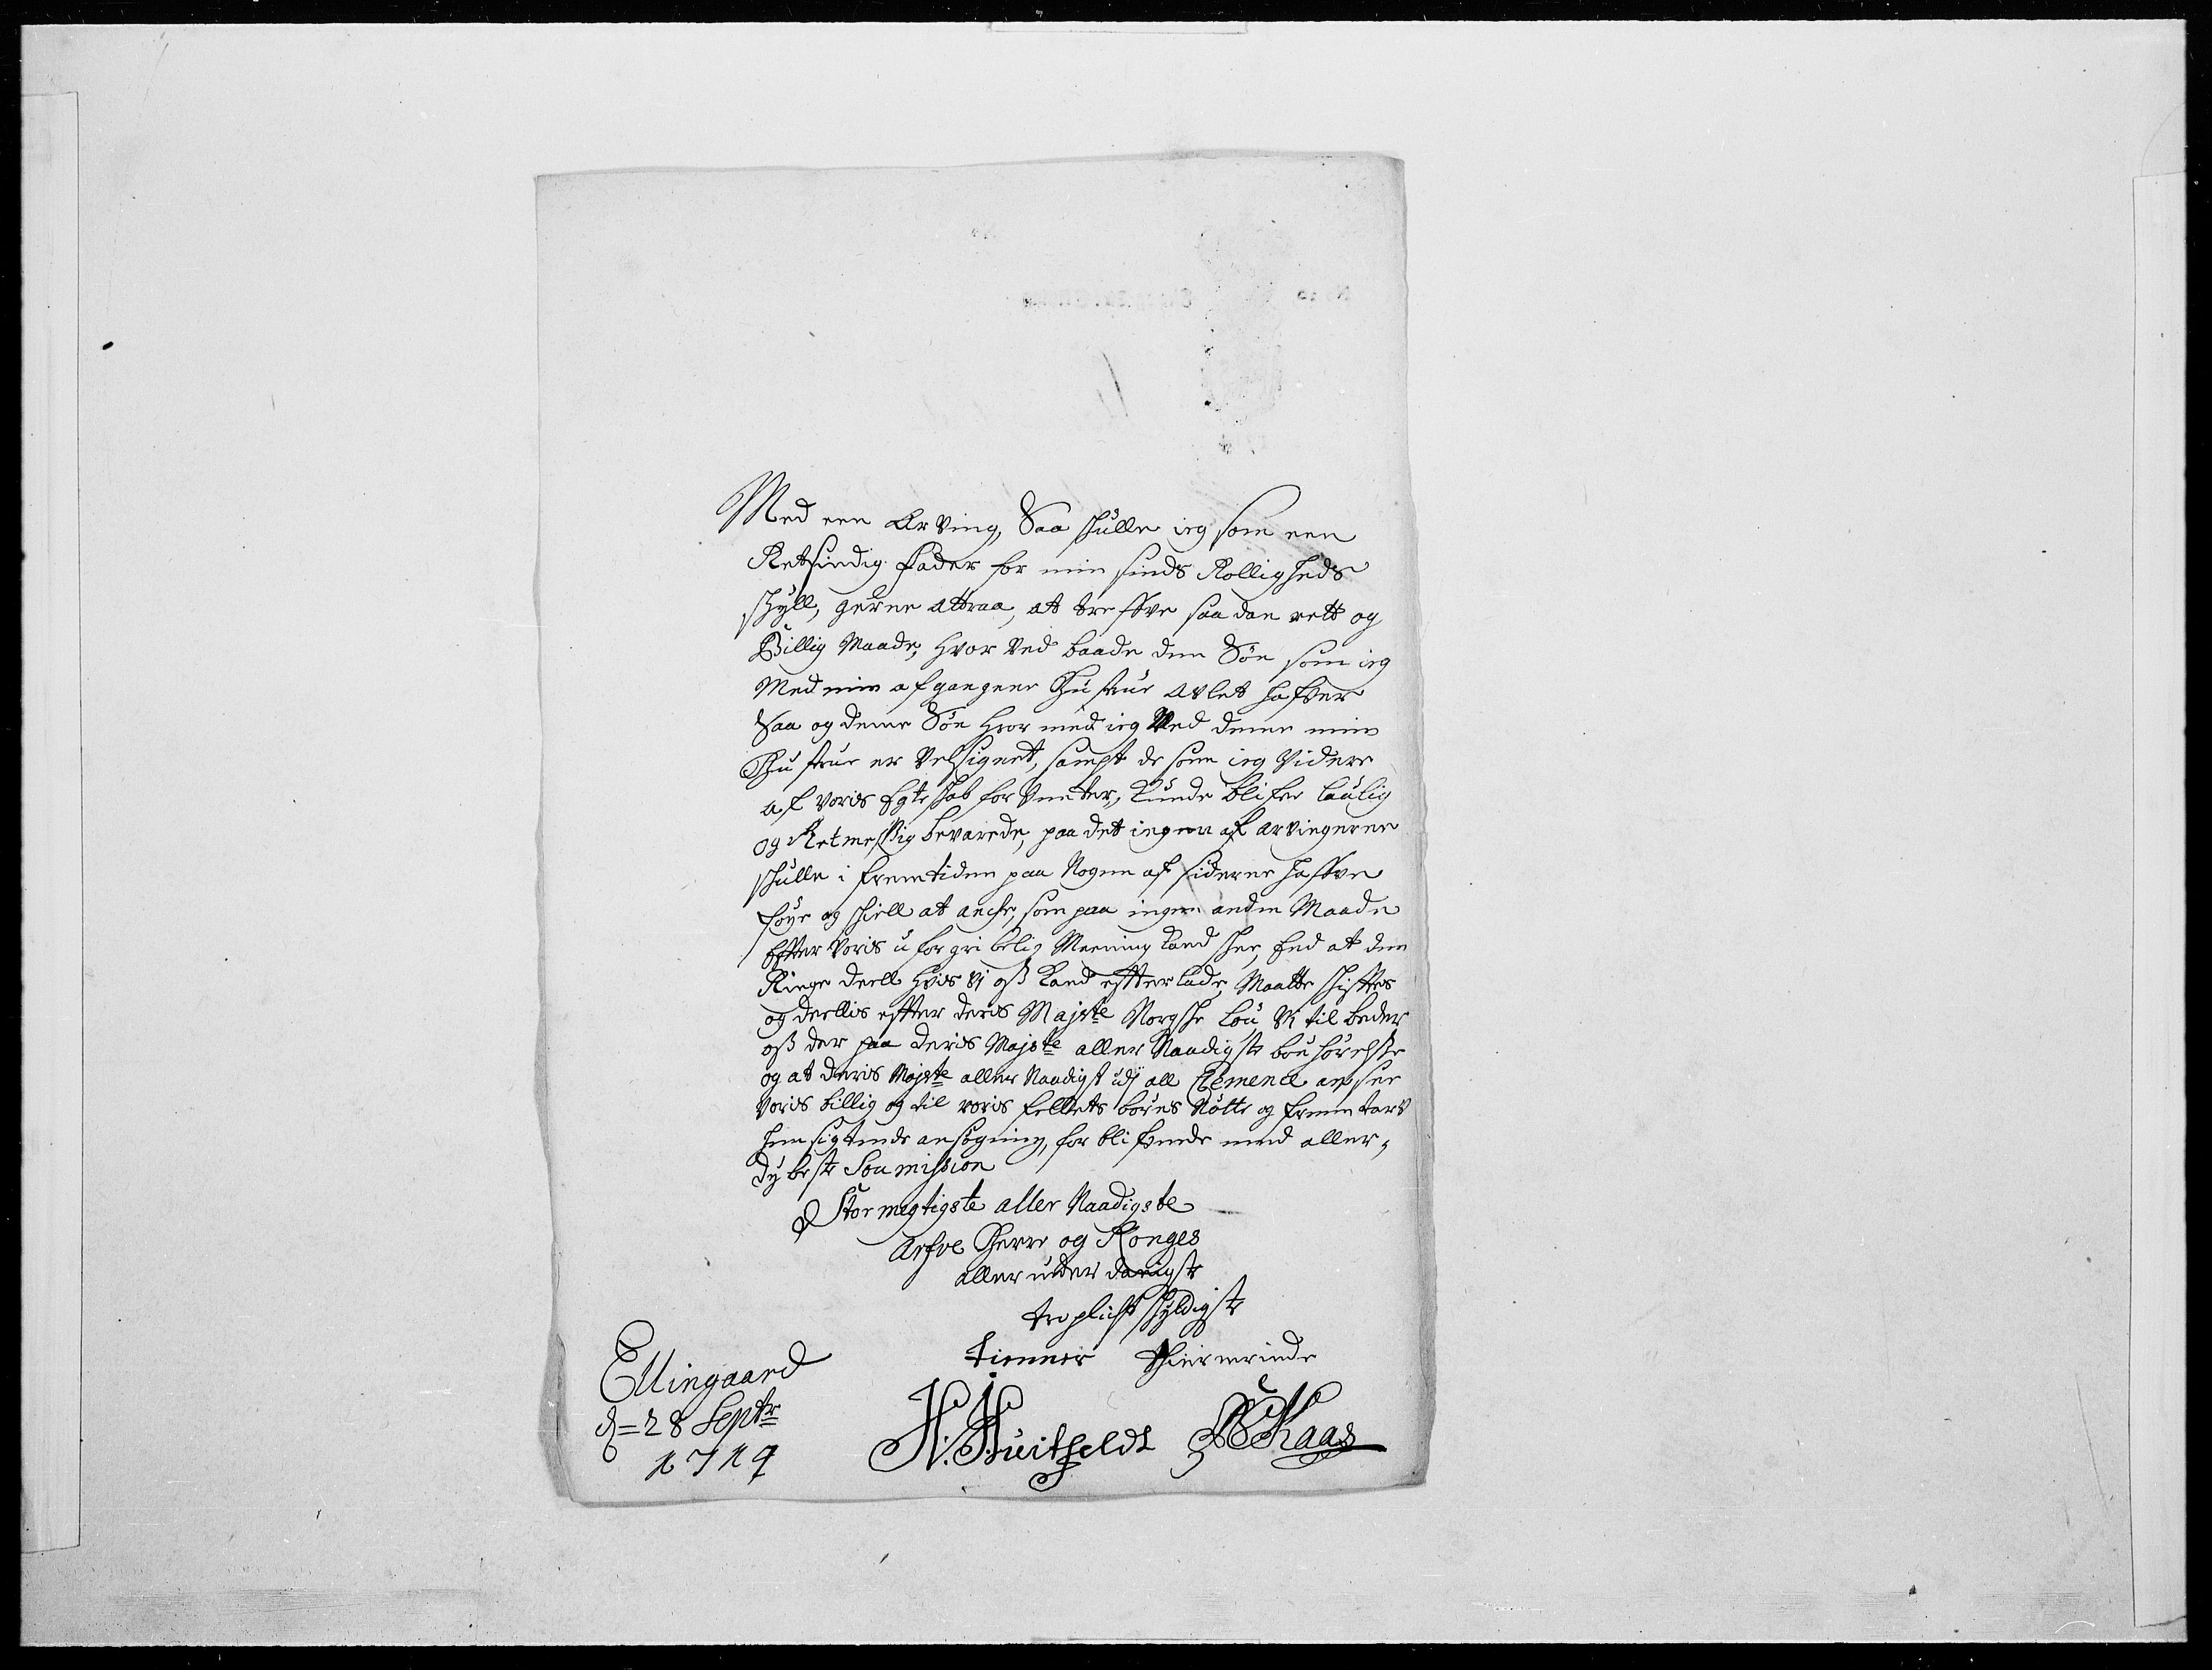 Med een Arving, Saa skulle ieg som een
Retsindig Fader for min sinds Rolligheds
skyll, gerne attraa, at treffve saadan rett og
Billig Maade, hvor ved baade den Søn som ieg
Med min afgangene Hustrue avlet hafver
Saa og denne Søn hvor med ieg Ved denne min
Hustrue er velsignet, sampt de som ieg Videre
af voris Egteskab forventer, kunde blifve loulig
og Retmessig bevarede, paa det ingen af arvingerne
skulle i fremtiden paa Nogen af siderne haffve
føye og skiell at anche, som paa ingen anden Maade
Efter Voris uforgribelig Meening kand skee, End at den
Ringe deell hvis Vi oß kand effterlade, Maatte skifftes
og deellis effter deris Majste Norgske Lou, Vi tilbeder
oß der paa deris Majste aller Naadigste bønhørelsse
og at deris Majste aller Naadigst udj all Clemence anseer
voris billig og til voris felleds børns Nøtte og fremtarv
hensigtende ansøgning, forblifvende med aller-
dybeste Soumission
Stormegtigste aller Naadigste
Arfve Herre og Konges
aller under danigste
troplicht skyldigste
tienner Thienerinde
Ellingaard
d= 28 Septr
1719
H: Huitfeldt Kaas